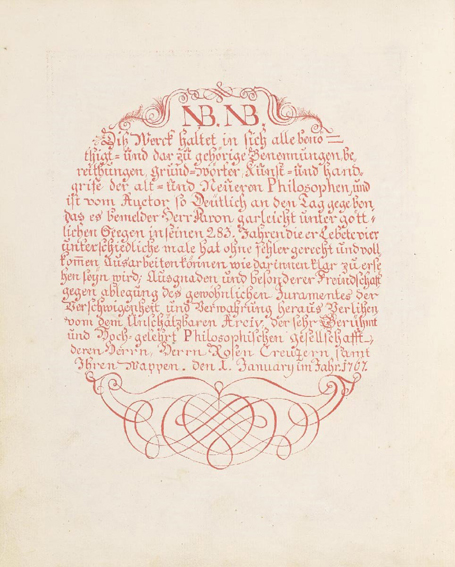 NB. NB.
Diß Werck haltet in sich alle beno=
thigt= und dar zu gehörige Benennungen, be,
reithungen, Grund=wörter, Kunst= und hand,
grife der alt= und Neueren Philosophen, und
ist vom Auctor so Deutlich an den Tag gegebon
das es bemelder Herr Aivon gar leicht unter gott=
lichen Seegen in seinen 283. Jahren die er Lebete vier
unterschiedliche male hat ohne fehler gerecht und voll
kom̄en Ausarbeiten können wie dar innen klar zu erse
hen seyn wird, Aus gnaden und besonderer Freindschaft
gegen ablegung des gewohnlichen Juramentes der
Verschwigenheit und Verwahrung heraus Verlihen
vom dem Unschätzbaren Areiv, der sehr Berühmt
und Hoch=gelehrt Philosophischen gesellschafft,
deren Herrn, Herrn Rosen Creutzern, samt
Ihren wappen. den 1. January im Jahr. 1707.